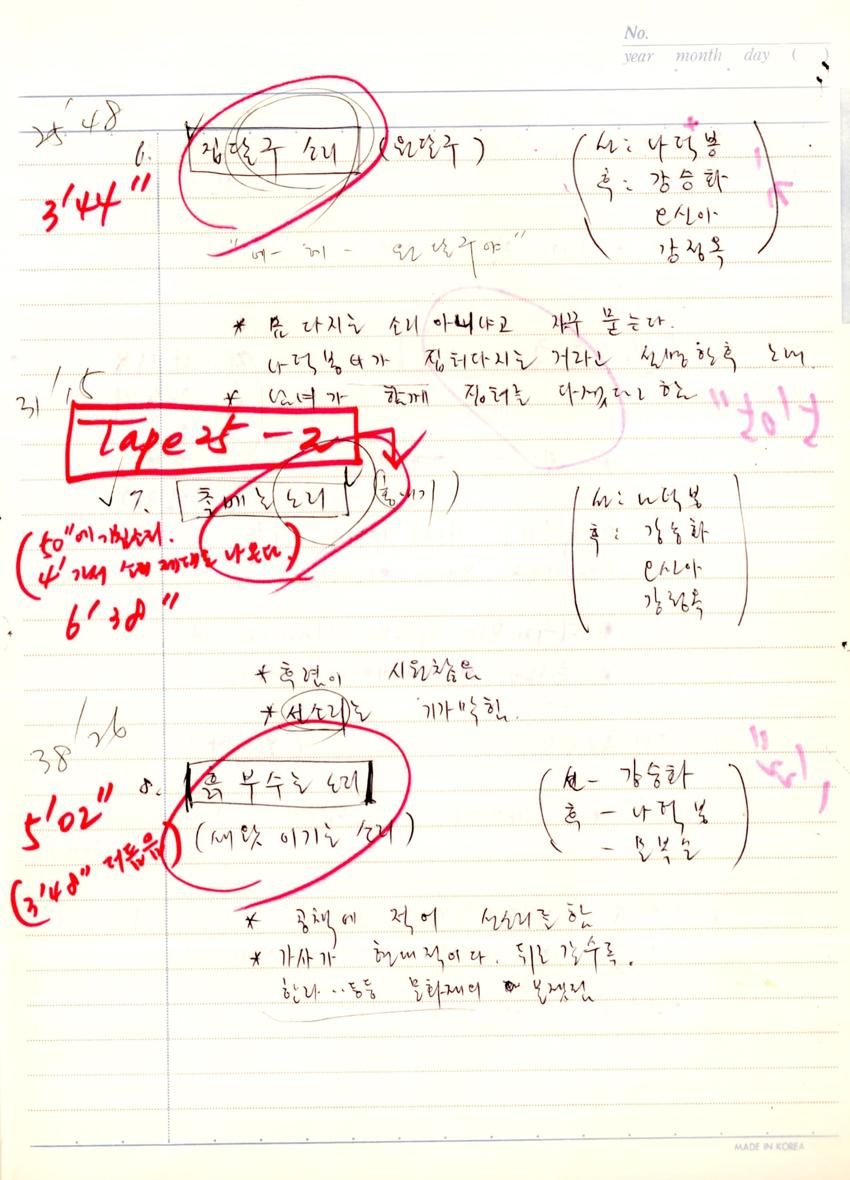 No.
year month day ( )
25'48
6. 집달구 소리 (원달구)
3'44"
선: 나덕봉
훅: 강승화
문신아
강정옥
"에- 헤- 원달구야"
* 뭄 다지는 소리 아니냐고 자꾸 묻는다.
나덕봉씨가 집터다지는 거라고 설명한 후 노래.
31'15
* 남녀가 함께 집터를 다졌다고 함
Tape 25-2
7. 소리
(50"에
4' 가서 소리 제대로 나온다.)
6'38"
선: 나덕봉
훅: 강승화
문신아
강정옥
* 훅련이 시원찮음
* 선소리는 기가막힘.
38'26
8. 흙 부수는 소리
5'02"
(새왓 이기는 소리)
(3'48" 더듬음)
선- 강승화
훅- 나덕봉
* 공책에 적어 선소리를 함
* 가사가 현대적이다. 뒤로 갈수록.
한라..등등 문화재의
MADE IN KOREA